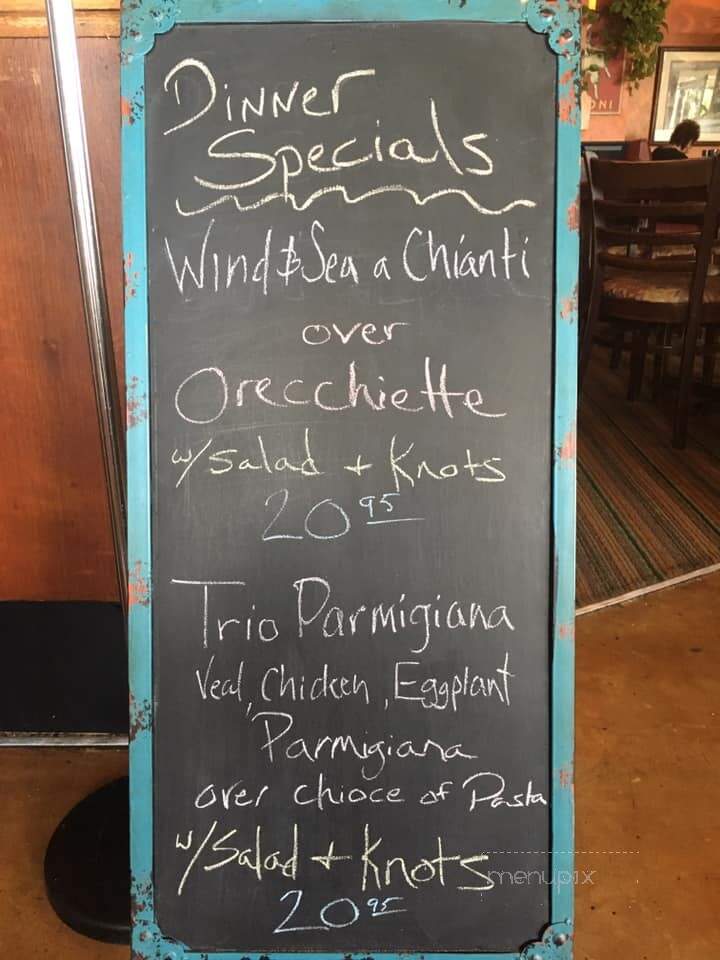 Dinner
Specials
Wind & Sea a Chianti
over
Orecchiette
w/ Salad + Knots
20 95
Trio Parmigiana
Veal, Chicken, Eggplant
Parmigiana
over chioce of Pasta
w/ Salad + Knots
20 95
menupix
ONI